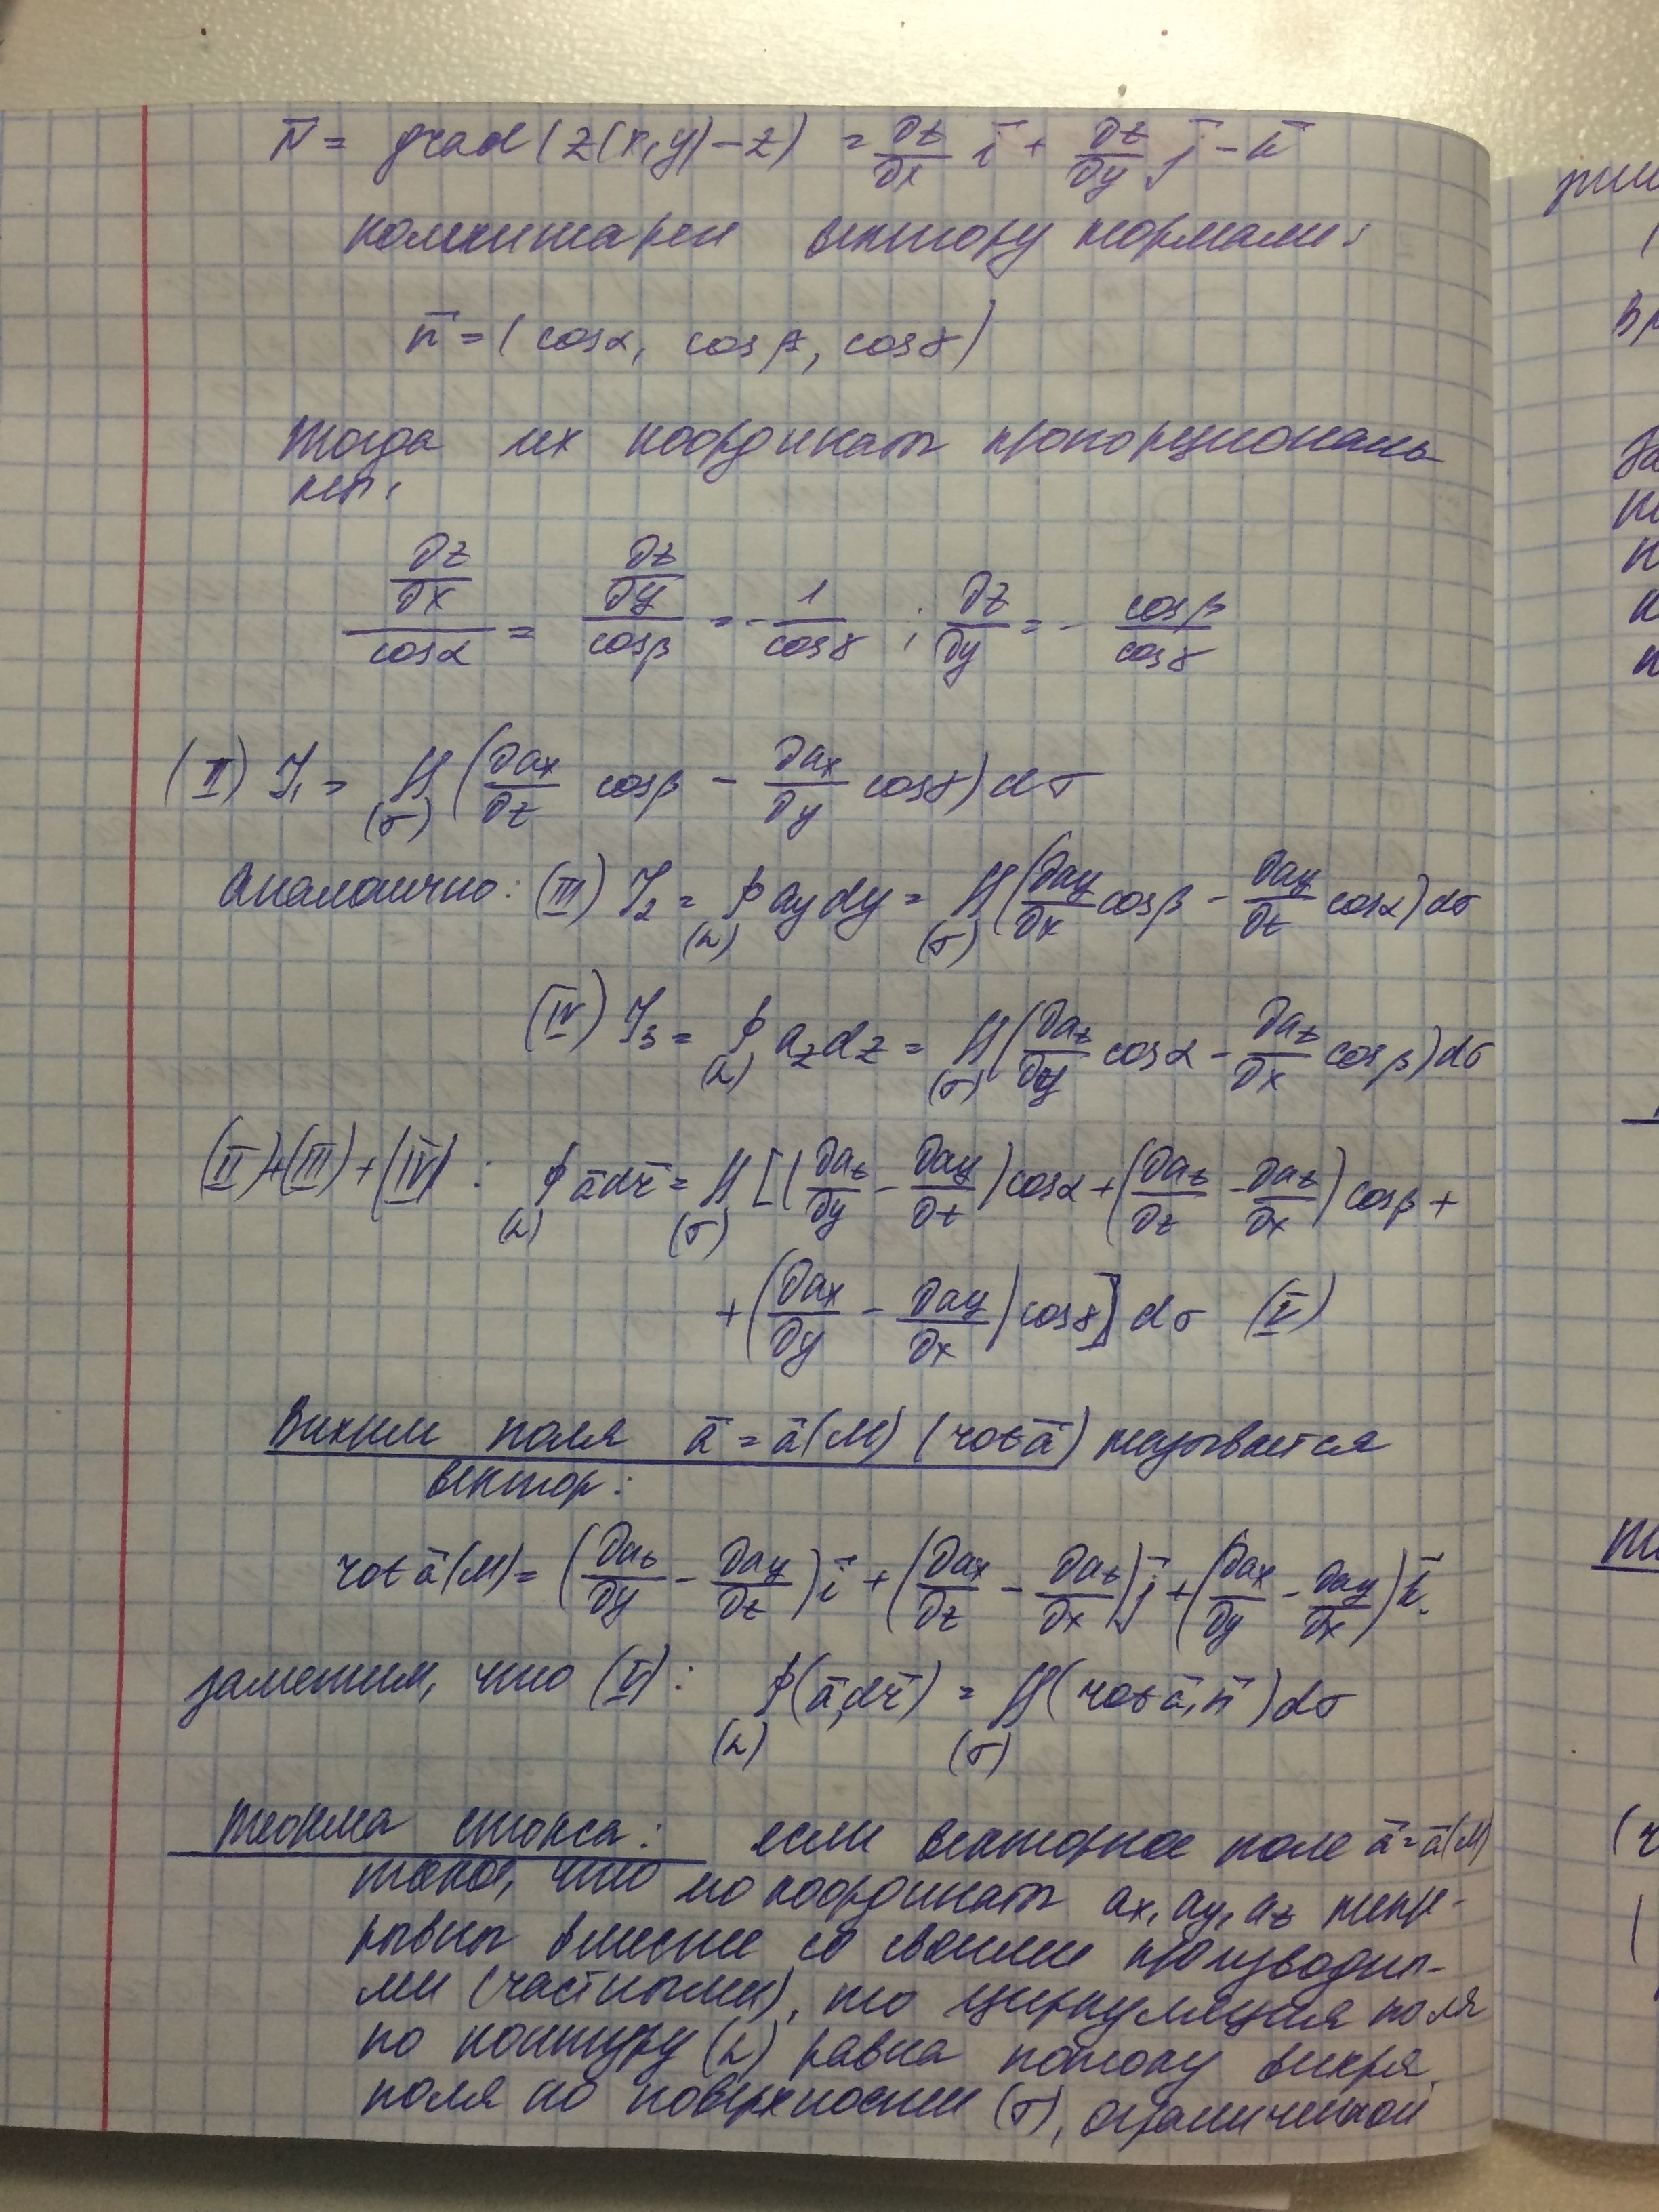 N̄ = grad(z(x,y)−z) = ∂z/∂x ī + ∂z/∂y j̄ − k̄
коллинеарен вектору нормали:
n̄ = (cosα, cosβ, cosγ)
Тогда их координат пропорциональ
ны,
(∂z/∂x)/cosα = (∂z/∂y)/cosβ = −1/cosγ ; ∂z/∂y = − cosβ/cosγ
(II) J₁ = ∬(σ) (∂ax/∂z cosβ − ∂ax/∂y cosγ) dσ
Аналогично: (III) J₂ = ∮(L) ay dy = ∬(σ) (∂ay/∂x cosβ − ∂ay/∂z cosα) dσ
(IV) J₃ = ∮(L) az dz = ∬(σ) (∂az/∂y cosα − ∂az/∂x cosβ) dσ
(II)+(III)+(IV) : ∮(L) ā dr̄ = ∬(σ) [(∂az/∂y − ∂ay/∂z) cosα + (∂az/∂z − ∂az/∂x) cosβ +
+ (∂ax/∂y − ∂ay/∂x) cosγ] dσ (V)
Вихрем поля ā = ā(M) (rot ā) называется
вектор:
rot ā(M) = (∂az/∂y − ∂ay/∂z) ī + (∂ax/∂z − ∂az/∂x) j̄ + (∂ax/∂y − ∂ay/∂x) k̄.
заметим, что (V): ∮(L) (ā, dr̄) = ∬(σ) (rot ā, n̄) dσ
Теорема Стокса: если векторное поле ā = ā(M)
такое, что его координат ax, ay, az непре-
рывны вместе со своими производны-
ми (частными), то циркуляция поля
по контуру (L) равна потоку вихря
поля по поверхности (σ), ограниченной